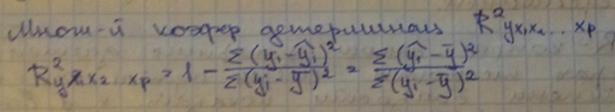 Множ-й коэфф детерминац R²yx₁x₂...xp
R²yx₁x₂...xp = 1 - Σ(yᵢ-ŷᵢ)²/Σ(yᵢ-ȳ)² = Σ(ŷᵢ-ȳ)²/Σ(yᵢ-ȳ)²